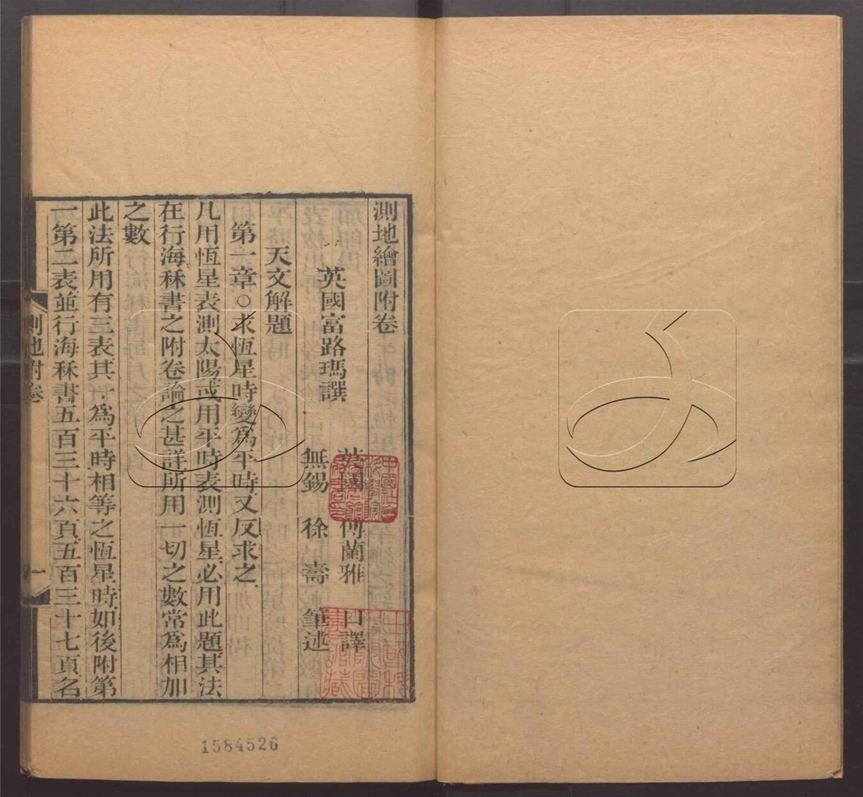 測地繪圖附卷
英國富路瑪譔
英國 傅蘭雅 口譯
無錫 徐壽 筆述
天文解題
第一章○求恆星時變爲平時又反求之
凡用恆星表測太陽或用平時表測恆星必用此題其法
在行海秝書之附卷論之甚詳所用一切之數常爲相加
之數
此法所用有三表其一爲平時相等之恆星時如後附第
一第二表並行海秝書五百三十六頁五百三十七頁名
測地附卷
一
1584526